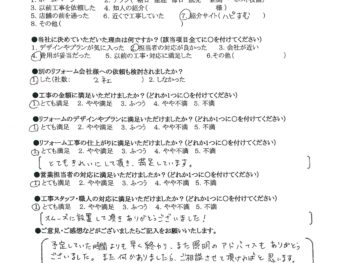 3. 以前工事を依頼した 4. 知人の紹介( 様)
5. 店舗の前を通った 6. 近くで工事していた 7. 紹介サイト(ハピすむ)
8. その他( )
●当社に決めていただいた理由は何ですか?(該当項目全てに○を付けてください)
1. デザインやプランが気に入った 2. 担当者の対応が良かった 3. 会社が近い
4. 費用が妥当だった 5. 以前の工事・対応に満足した 6. その他( )
●別のリフォーム会社様への依頼も検討されましたか?
1. した(社数: 2社 ) 2. しなかった
●工事の金額に満足いただけましたか?(どれか1つに○を付けてください)
1. とても満足 2. やや満足 3. ふつう 4. やや不満 5. 不満
●リフォームのデザインやプランに満足いただけましたか?(どれか1つに○を付けてください)
1. とても満足 2. やや満足 3. ふつう 4. やや不満 5. 不満
●リフォーム工事の仕上がりに満足いただけましたか?(どれか1つに○を付けてください)
1. とても満足 2. やや満足 3. ふつう 4. やや不満 5. 不満
とてもきれいにして頂き、満足しています。
●営業担当者の対応に満足いただけましたか?(どれか1つに○を付けてください)
1. とても満足 2. やや満足 3. ふつう 4. やや不満 5. 不満
●工事スタッフ・職人の対応に満足いただけましたか?(どれか1つに○を付けてください)
1. とても満足 2. やや満足 3. ふつう 4. やや不満 5. 不満
スムーズに設置して頂きありがとうございました!
●ご意見・ご感想などがございましたらご記入をお願いいたします。
予定していた時間よりも早く終わり、また照明のアドバイスもありがとう
ございました。また何かありましたら、ご相談させて頂ければと思います。